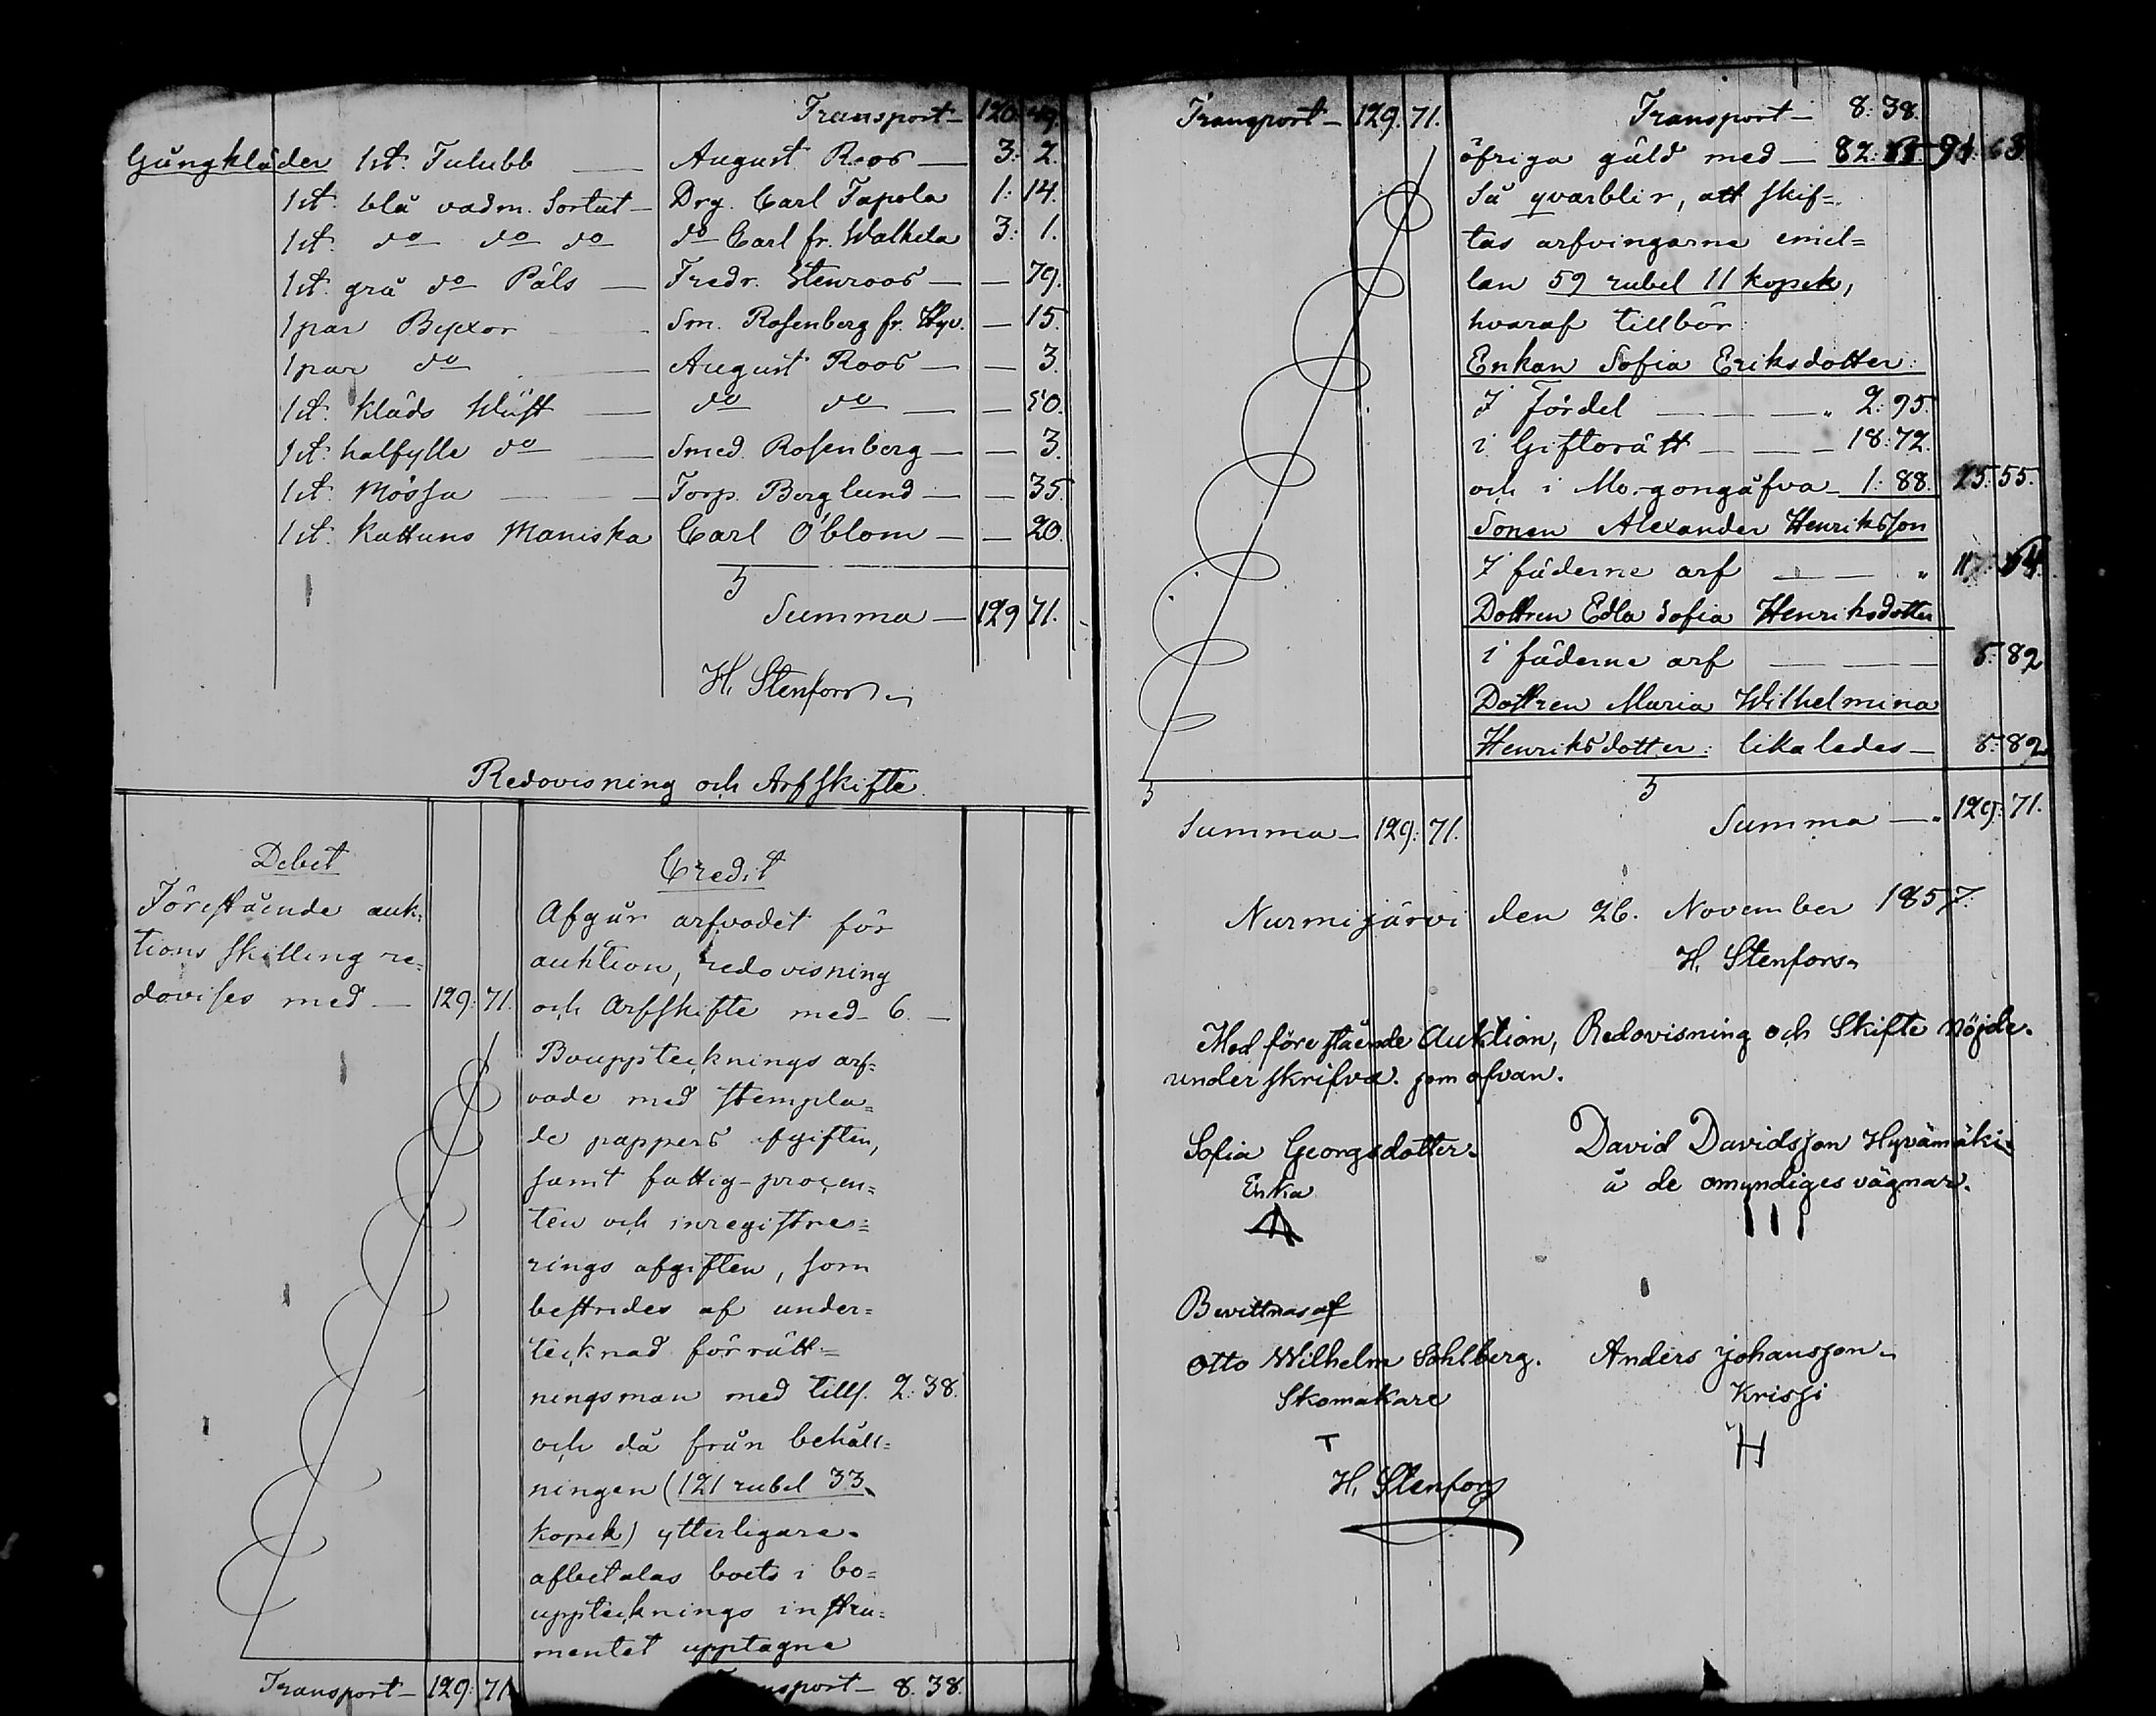 Transport — 120: 49.
Gångkläder 1 st. Tulubb — August Roos — 3: 2.
1 st. blå vadm. Sortut — Drg. Carl Tapola 1: 14.
1 st. do do do do Carl fr. Walkela 3: 1.
1 st. grå do Päls — Fredr. Stenroos — — 79.
1 par Byxor Sm. Rosenberg fr. Hyv. — 15.
1 par do — August Roos — — 3.
1 st. kläds Wäst — do do — — 50.
1 st. halfylle do — Smed. Rosenberg — — 3.
1 st. Mössa — — Torp. Berglund — — 35.
1 st. Kattuns Maniska Carl Öblom — — 20.
Summa — 129 71.
H. Stenfors
Redovisning och Arfskifte.
Debet
Förestående auk=
tions skilling re=
dovises med — 129: 71.
Transport — 129: 71
Credit
Afgår arfvodet för
auktion, redovisning
och Arfskifte med 6. —
Bouppteknings arf=
vode med stempla=
de pappers afgiften,
samt fattig-procen=
ten och inregistre=
rings afgiften, som
bestrides af under=
tecknad förrätt=
ningsman med tills. 2: 38.
och då från behåll=
ningen (121 rubel 33
kopek) ytterligare
afbetalas boets i bo=
upptecknings instru=
mentet upptagne
Transport — 8. 38.
Transport — 129. 71.
Summa — 129: 71.
Transport — 8: 38.
öfriga gäld med — 82: 63
så qvarblir, att skif=
tas arfvingarne emel=
lan 59 rubel 11 kopek,
hvaraf tillbör:
Enkan Sofia Eriksdotter:
I Fördel — — — „ 2: 95.
i Giftorätt — — — 18: 72.
och i Morgongåfva — 1: 88. 25: 55.
Sonen Alexander Henriksson
I fäderne arf — — „
Dottren Edla Sofia Henriksdotter
i fäderne arf — — — 5: 82
Dottren Maria Wilhelmina
Henriksdotter: likaledes — 5: 82
Summa — „ 129: 71.
Nurmijärvi den 26. November 1857.
H. Stenfors
Med förestående Auktion, Redovisning och Skifte nöjde.
underskrifva. som ofvan.
Sofia Georgsdotter.
Enka
David Davidsson Hyvämäki
å de omyndiges vägnar.
Bevittnas af
Otto Wilhelm Sohlberg.
Skomakare
T
Anders Johansson
Krissi
H
H. Stenfors